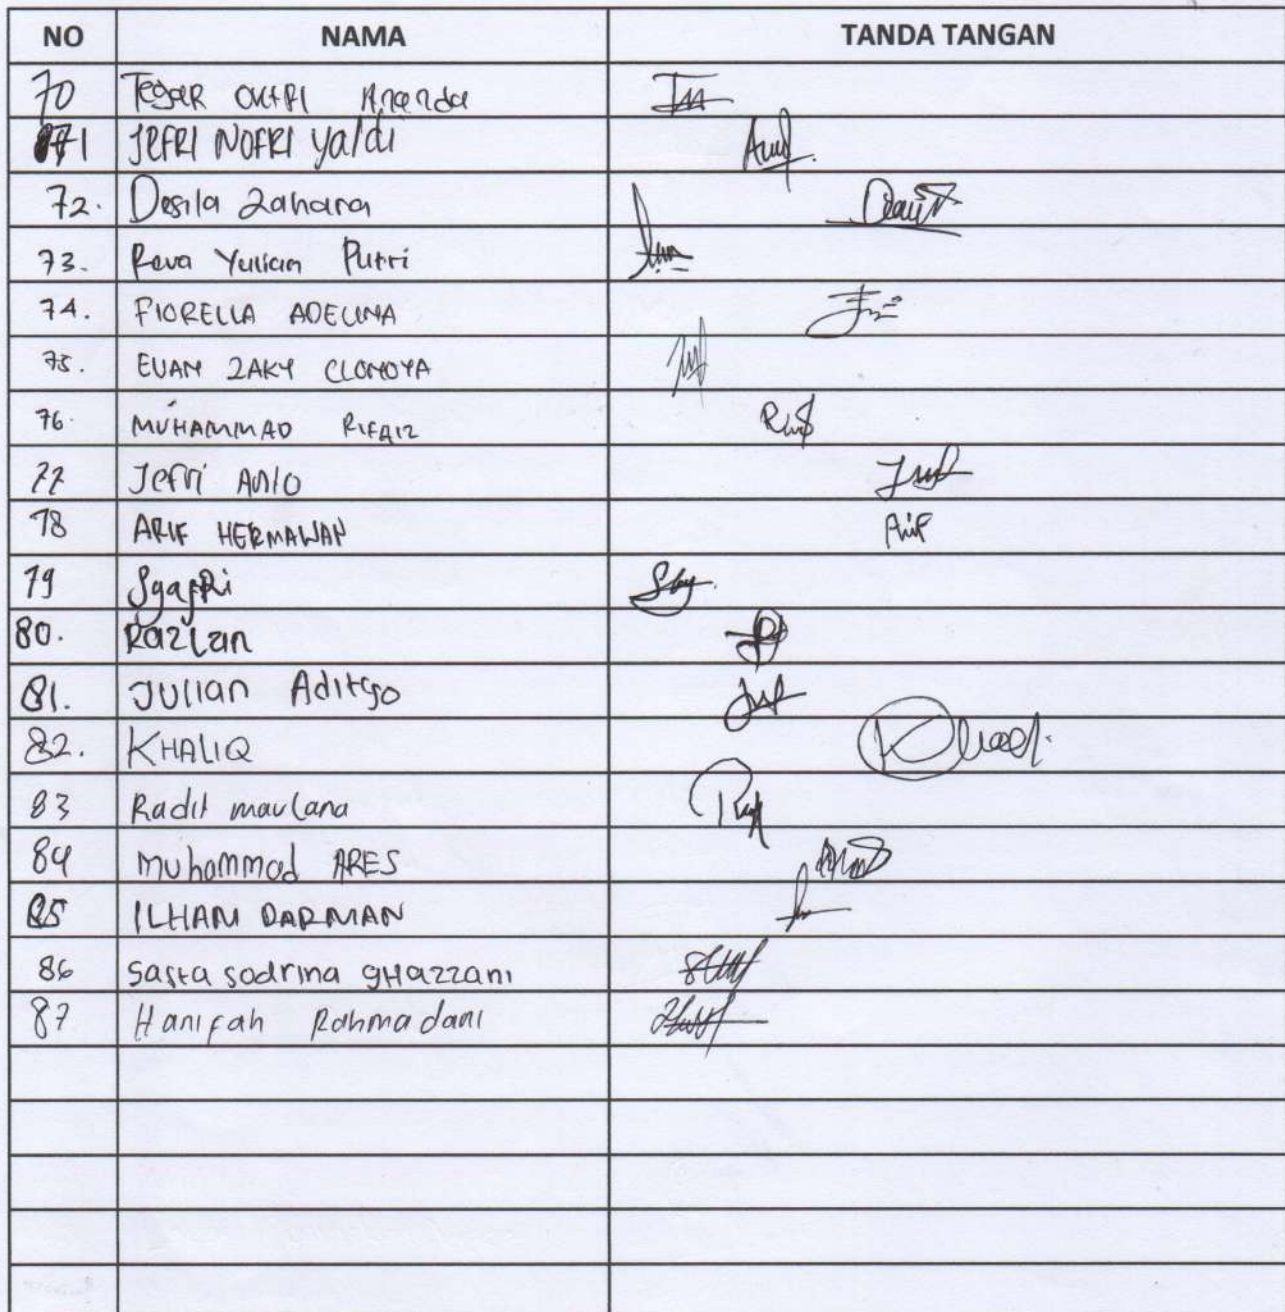 NO NAMA TANDA TANGAN
70 Tegar Ananda
71 JEFRI NOFRI Yaldi
72. Desila Zahara
73. Reva Yulian Putri
74. FIORELLA ADELINA
75. EVAN ZAKY CLONOYA
76. MUHAMMAD RIFAIZ
77 Jefri
78 ARIF HERMAWAN Arif
79 Syafri
80. Razlan
81. Julian Adityo
82. KHALIQ
83 Radit maulana
84 Muhammad ARES
85 ILHAM DARMAN
86 Sasta sodrina gHazzani
87 Hanifah Rahmadani